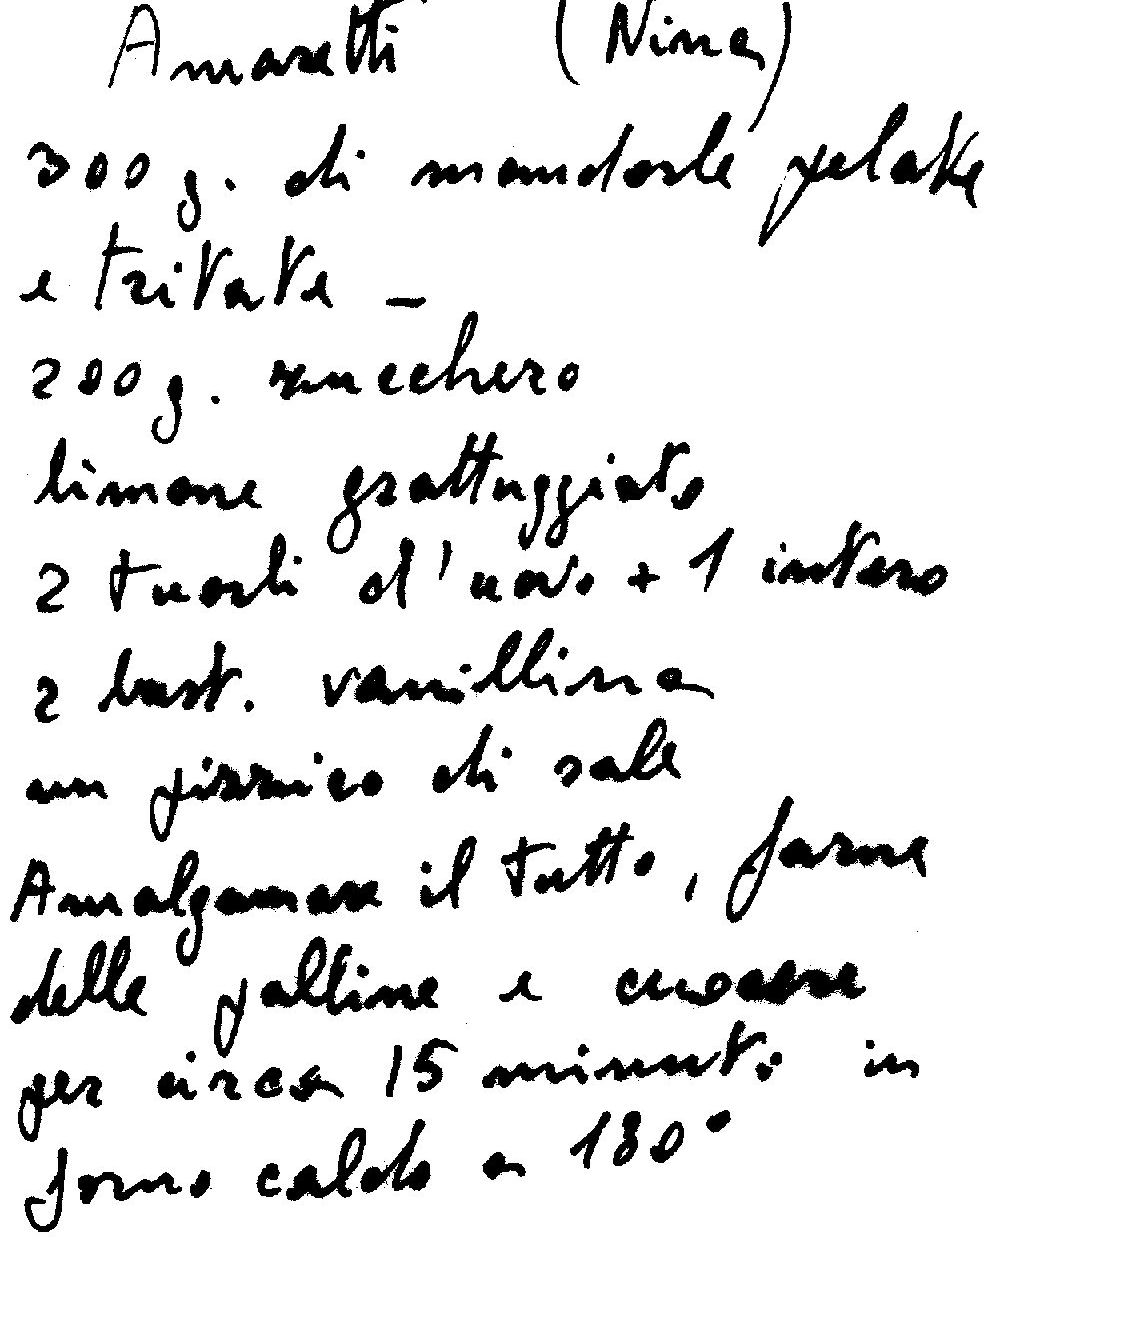 Amaretti (Nina)
300 g. di mandorle pelate
e tritate -
200 g. zucchero
limone grattuggiato
2 tuorli d'uovo + 1 intero
2 bust. vanillina
un pizzico di sale
Amalgamare il tutto, farne
delle palline e cuocere
per circa 15 minuti in
forno caldo a 180°